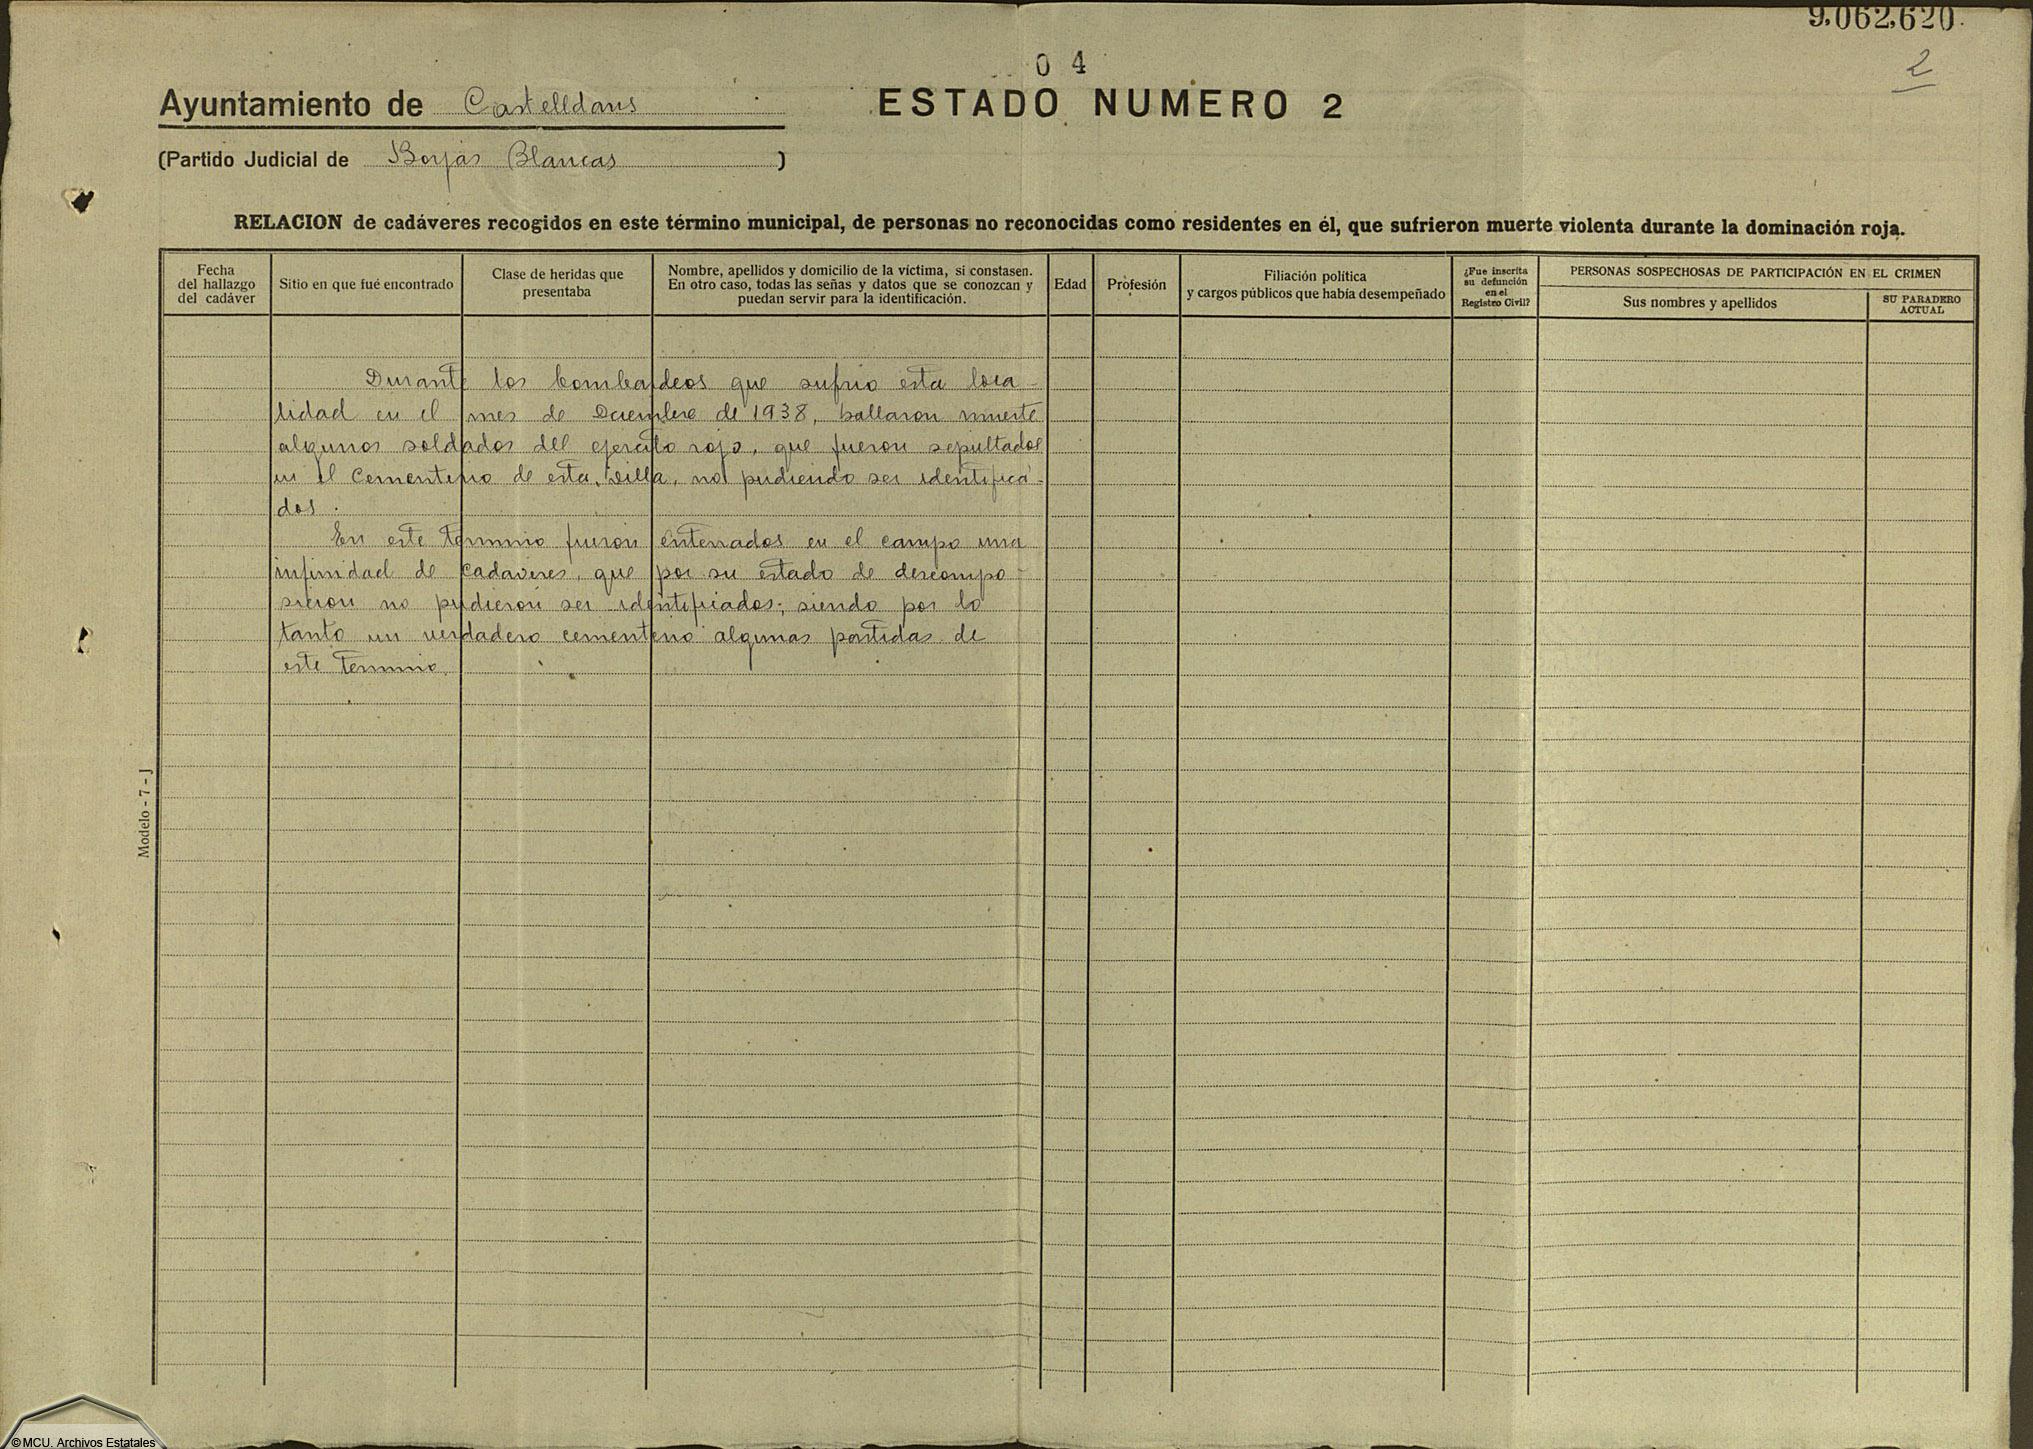 9,062,620
2
0 4
Ayuntamiento de Castelldans
ESTADO NUMERO 2
(Partido Judicial de Borjas Blancas)
RELACION de cadáveres recogidos en este término municipal, de personas no reconocidas como residentes en él, que sufrieron muerte violenta durante la dominación roja.
Fecha
del hallazgo
del cadáver
Sitio en que fué encontrado
Clase de heridas que
presentaba
Nombre, apellidos y domicilio de la víctima, si constasen.
En otro caso, todas las señas y datos que se conozcan y
puedan servir para la identificación.
Edad
Profesión
Filiación política
y cargos públicos que había desempeñado
¿Fue inscrita
su defunción
en el
Registro Civil?
PERSONAS SOSPECHOSAS DE PARTICIPACIÓN EN EL CRIMEN
Sus nombres y apellidos
SU PARADERO
ACTUAL
Durante los bombardeos que sufrio esta loca-
lidad en el mes de Diciembre de 1938, hallaron muerte
algunos soldados del ejercito rojo, que fueron sepultados
en el Cementerio de esta villa, no pudiendo ser identifica-
dos.
En este termino fueron enterrados en el campo una
infinidad de cadaveres, que por su estado de descompo-
sicion no pudieron ser identificados; siendo por lo
tanto un verdadero cementerio algunas partidas de
este termino.
Modelo - 7 - J
© MCU. Archivos Estatales